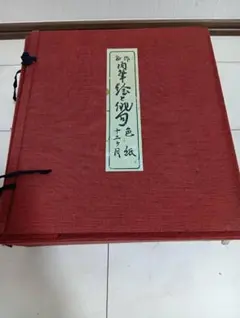 肉筆絵と俳句
色紙
十二ヶ月